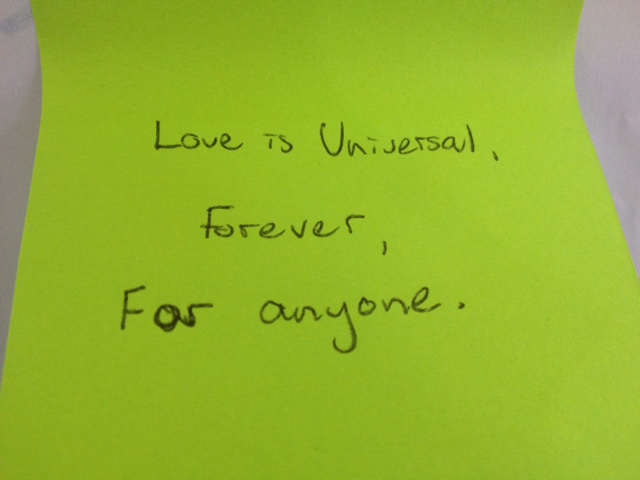 Love is Universal,
Forever,
For anyone.